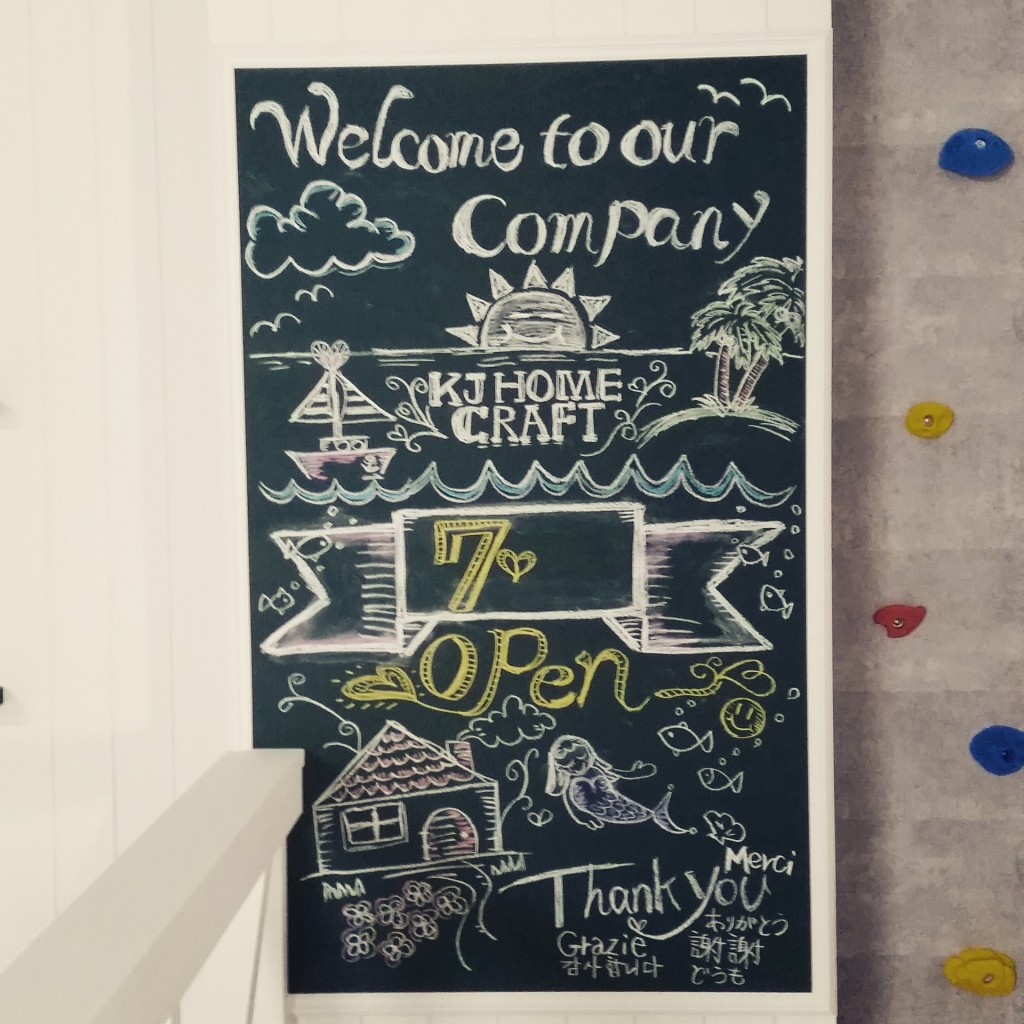 Welcome to our
Company
KJ HOME
CRAFT
7
open
Merci
Thank you
ありがとう
Grazie
謝謝
감사합니다
どうも